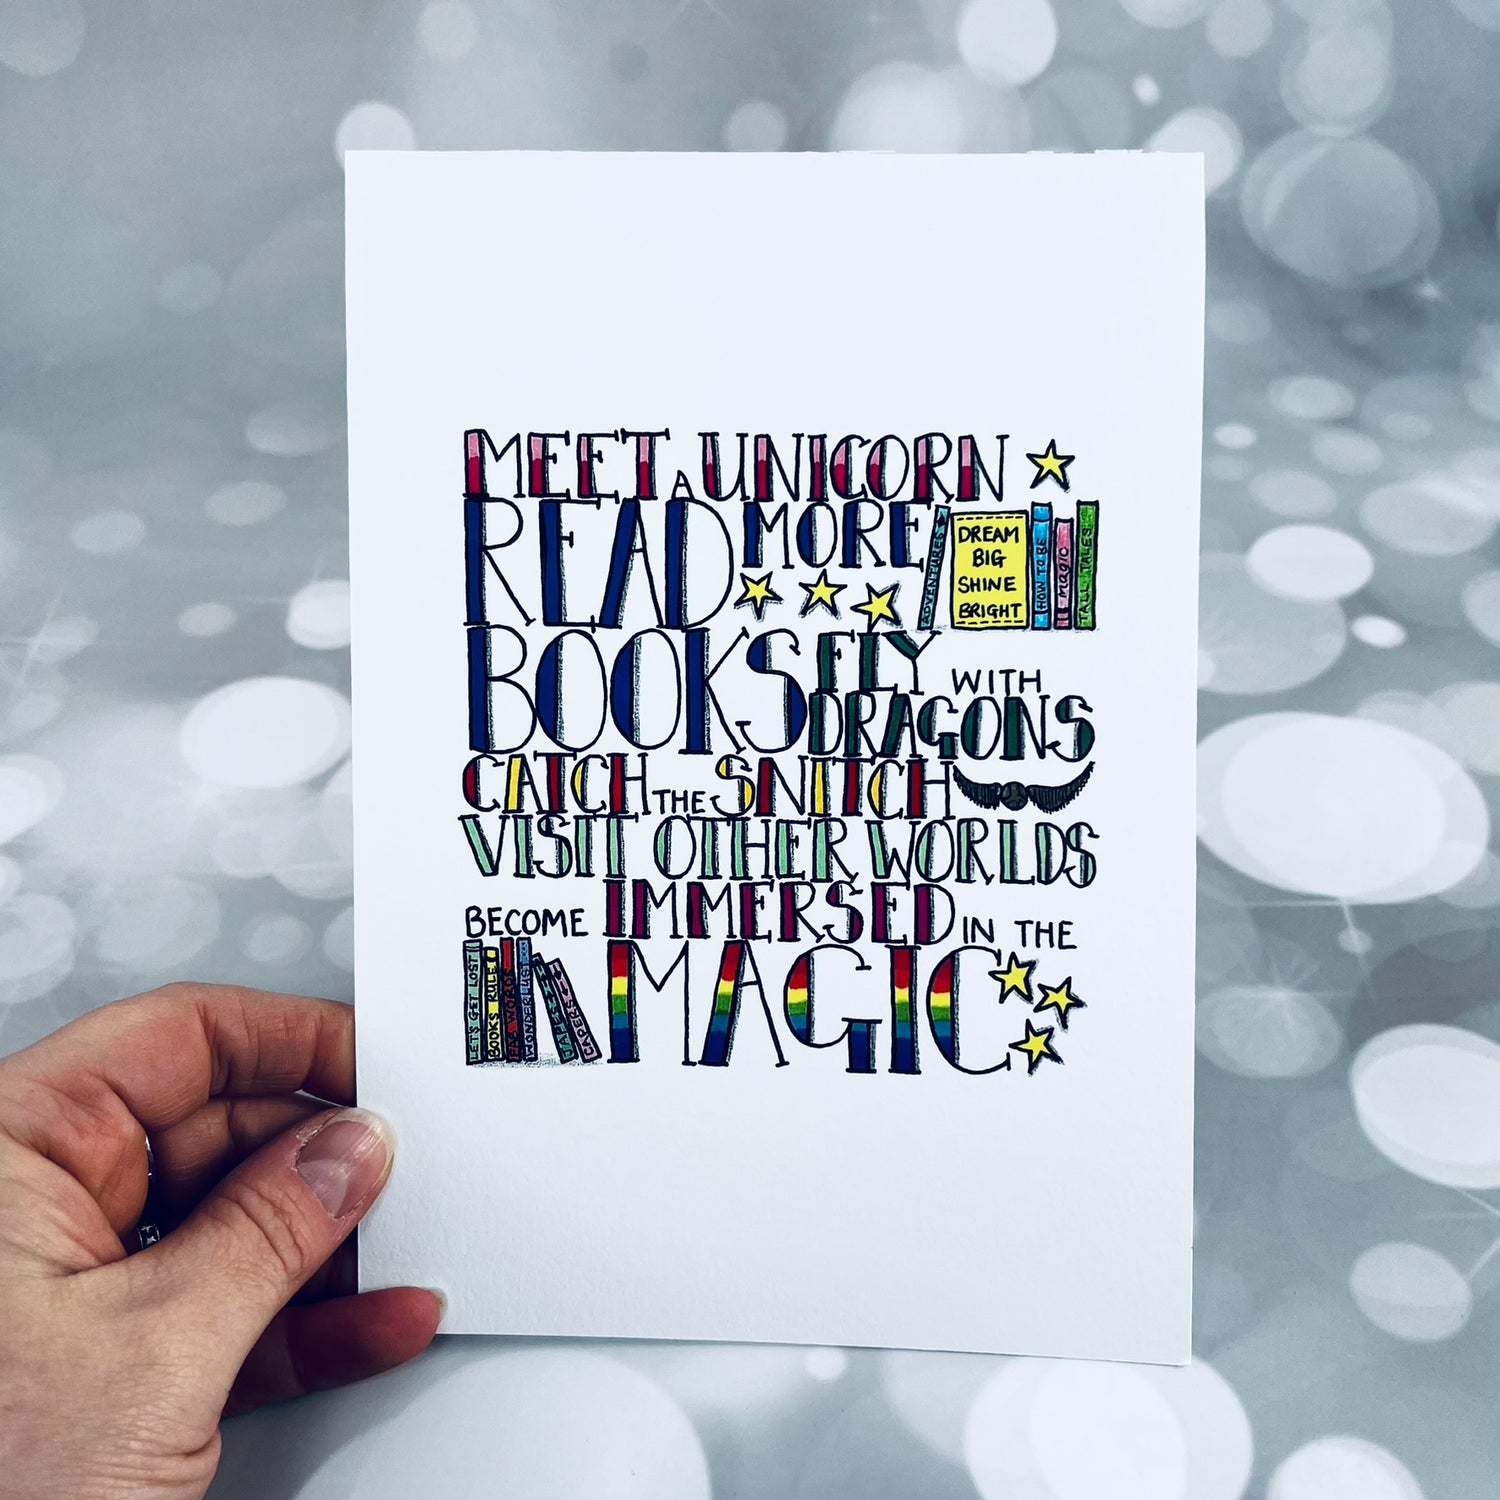 MEET A UNICORN
READ MORE
ADVENTURES
DREAM
BIG
SHINE
BRIGHT
HOW TO BE
magic
TALL TALES
BOOKS FLY WITH
DRAGONS
CATCH THE SNITCH
VISIT OTHER WORLDS
BECOME IMMERSED IN THE
MAGIC
LET'S GET LOST
BOOKS RULE
WORDS
WONDERLUST
CAPERS